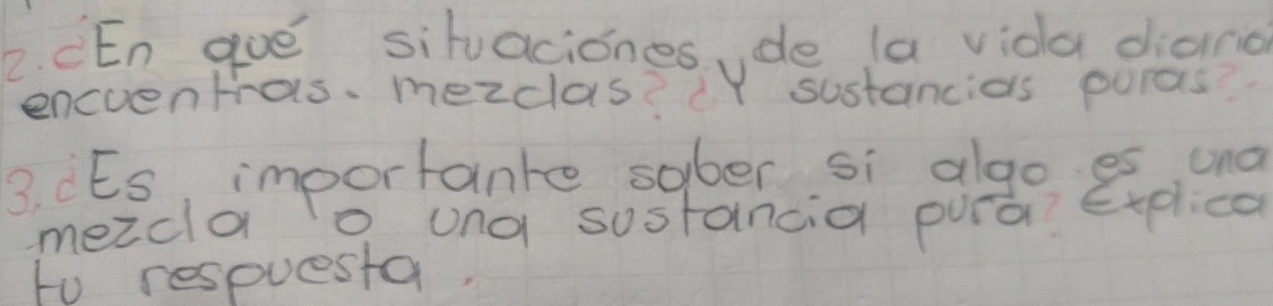 2. ¿En qué situaciónes de la vida diaria
encuentras. mezclas? ¿Y sustancias puras?.
3. ¿Es importante saber si algo es una
mezcla o una sustancia pura? Explica
tu respuesta.